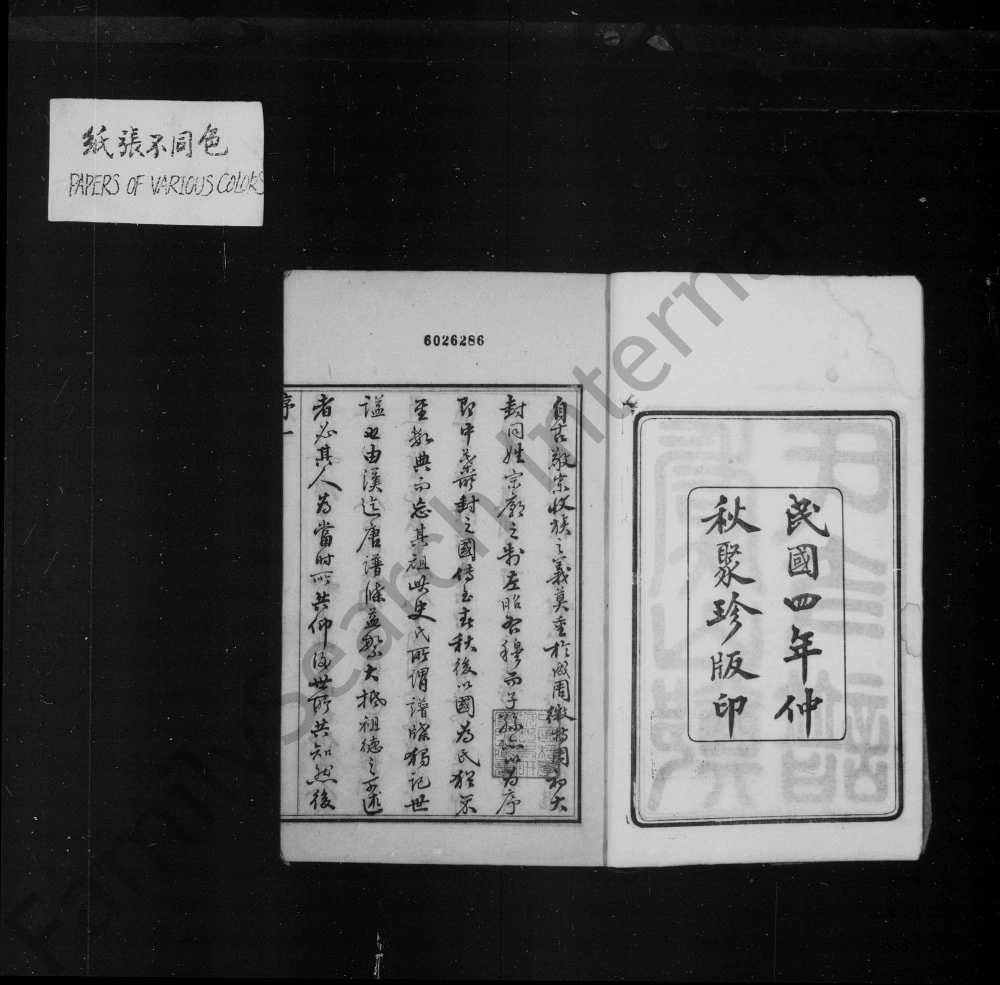 紙張不同色
PAPERS OF VARIOUS COLORS
民國四年仲
秋聚珍版印
6026286
自古敬宗收族之義莫重於成周徽特周初大
封同姓宗廟之制左昭右穆而子孫以為序
即中葉所封之國傳至春秋後以國為氏猶不
至數典而忘其祖此史氏所謂譜牒獨記世
謚也由漢迄唐譜牒益繁大抵祖德之可述
者必其人為當時所共仰後世所共知然後
序一
FamilySearch International